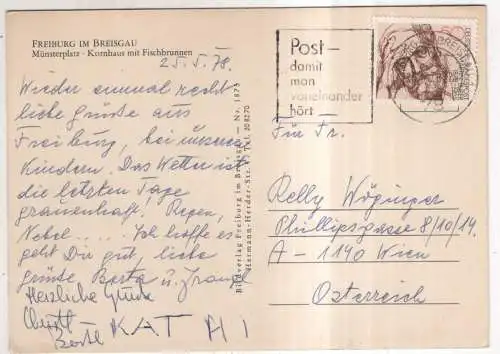 FREIBURG IM BREISGAU
Münsterplatz · Kornhaus mit Fischbrunnen
25.5.78.
Wieder einmal recht
liebe Grüße aus
Freiburg, bei unseren
Kindern. Das Wetter ist
die letzten Tage
grauenhaft! Regen,
Nebel.... Ich hoffe es
geht Dir gut, liebe
Grüße Berta u. Franz
Herzliche Grüße
KAT
Bildverlag Freiburg im Breisgau – Nr. 1873
Hermann-Herder-Str. Tel. 208270
Post –
damit
man
voneinander
hört
Für Fr.
Relly Wöginger
Phillipsgasse 8/10/14.
A – 1140 Wien
Österreich